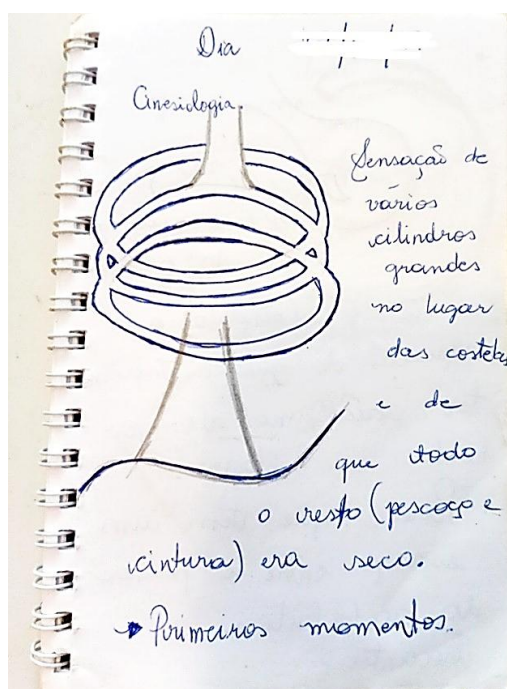 Dia
Cinesiologia.
Sensação de
vários
cilindros
grandes
no lugar
das costelas
e de
que todo
o resto (pescoço e
cintura) era seco.
→ Primeiros momentos.